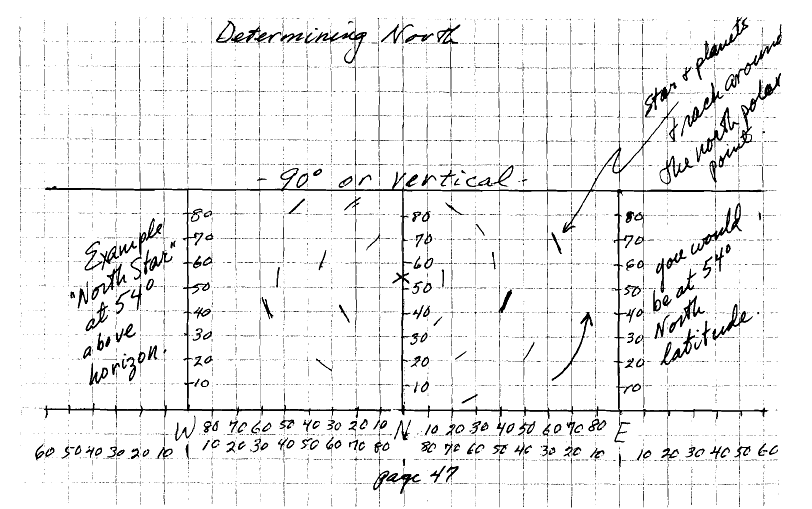 Determining North
Star & planets
track around
the north polar
point.
- 90° or vertical -
Example
"North Star"
at 54°
above
horizon.
80
70
60
50
40
30
20
10
80
70
60
50
40
30
20
10
80
70
60
50
40
30
20
10
you would
be at 54°
North
latitude.
W 80 70 60 50 40 30 20 10 N 10 20 30 40 50 60 70 80 E
60 50 40 30 20 10 10 20 30 40 50 60 70 80 80 70 60 50 40 30 20 10 10 20 30 40 50 60
page 47